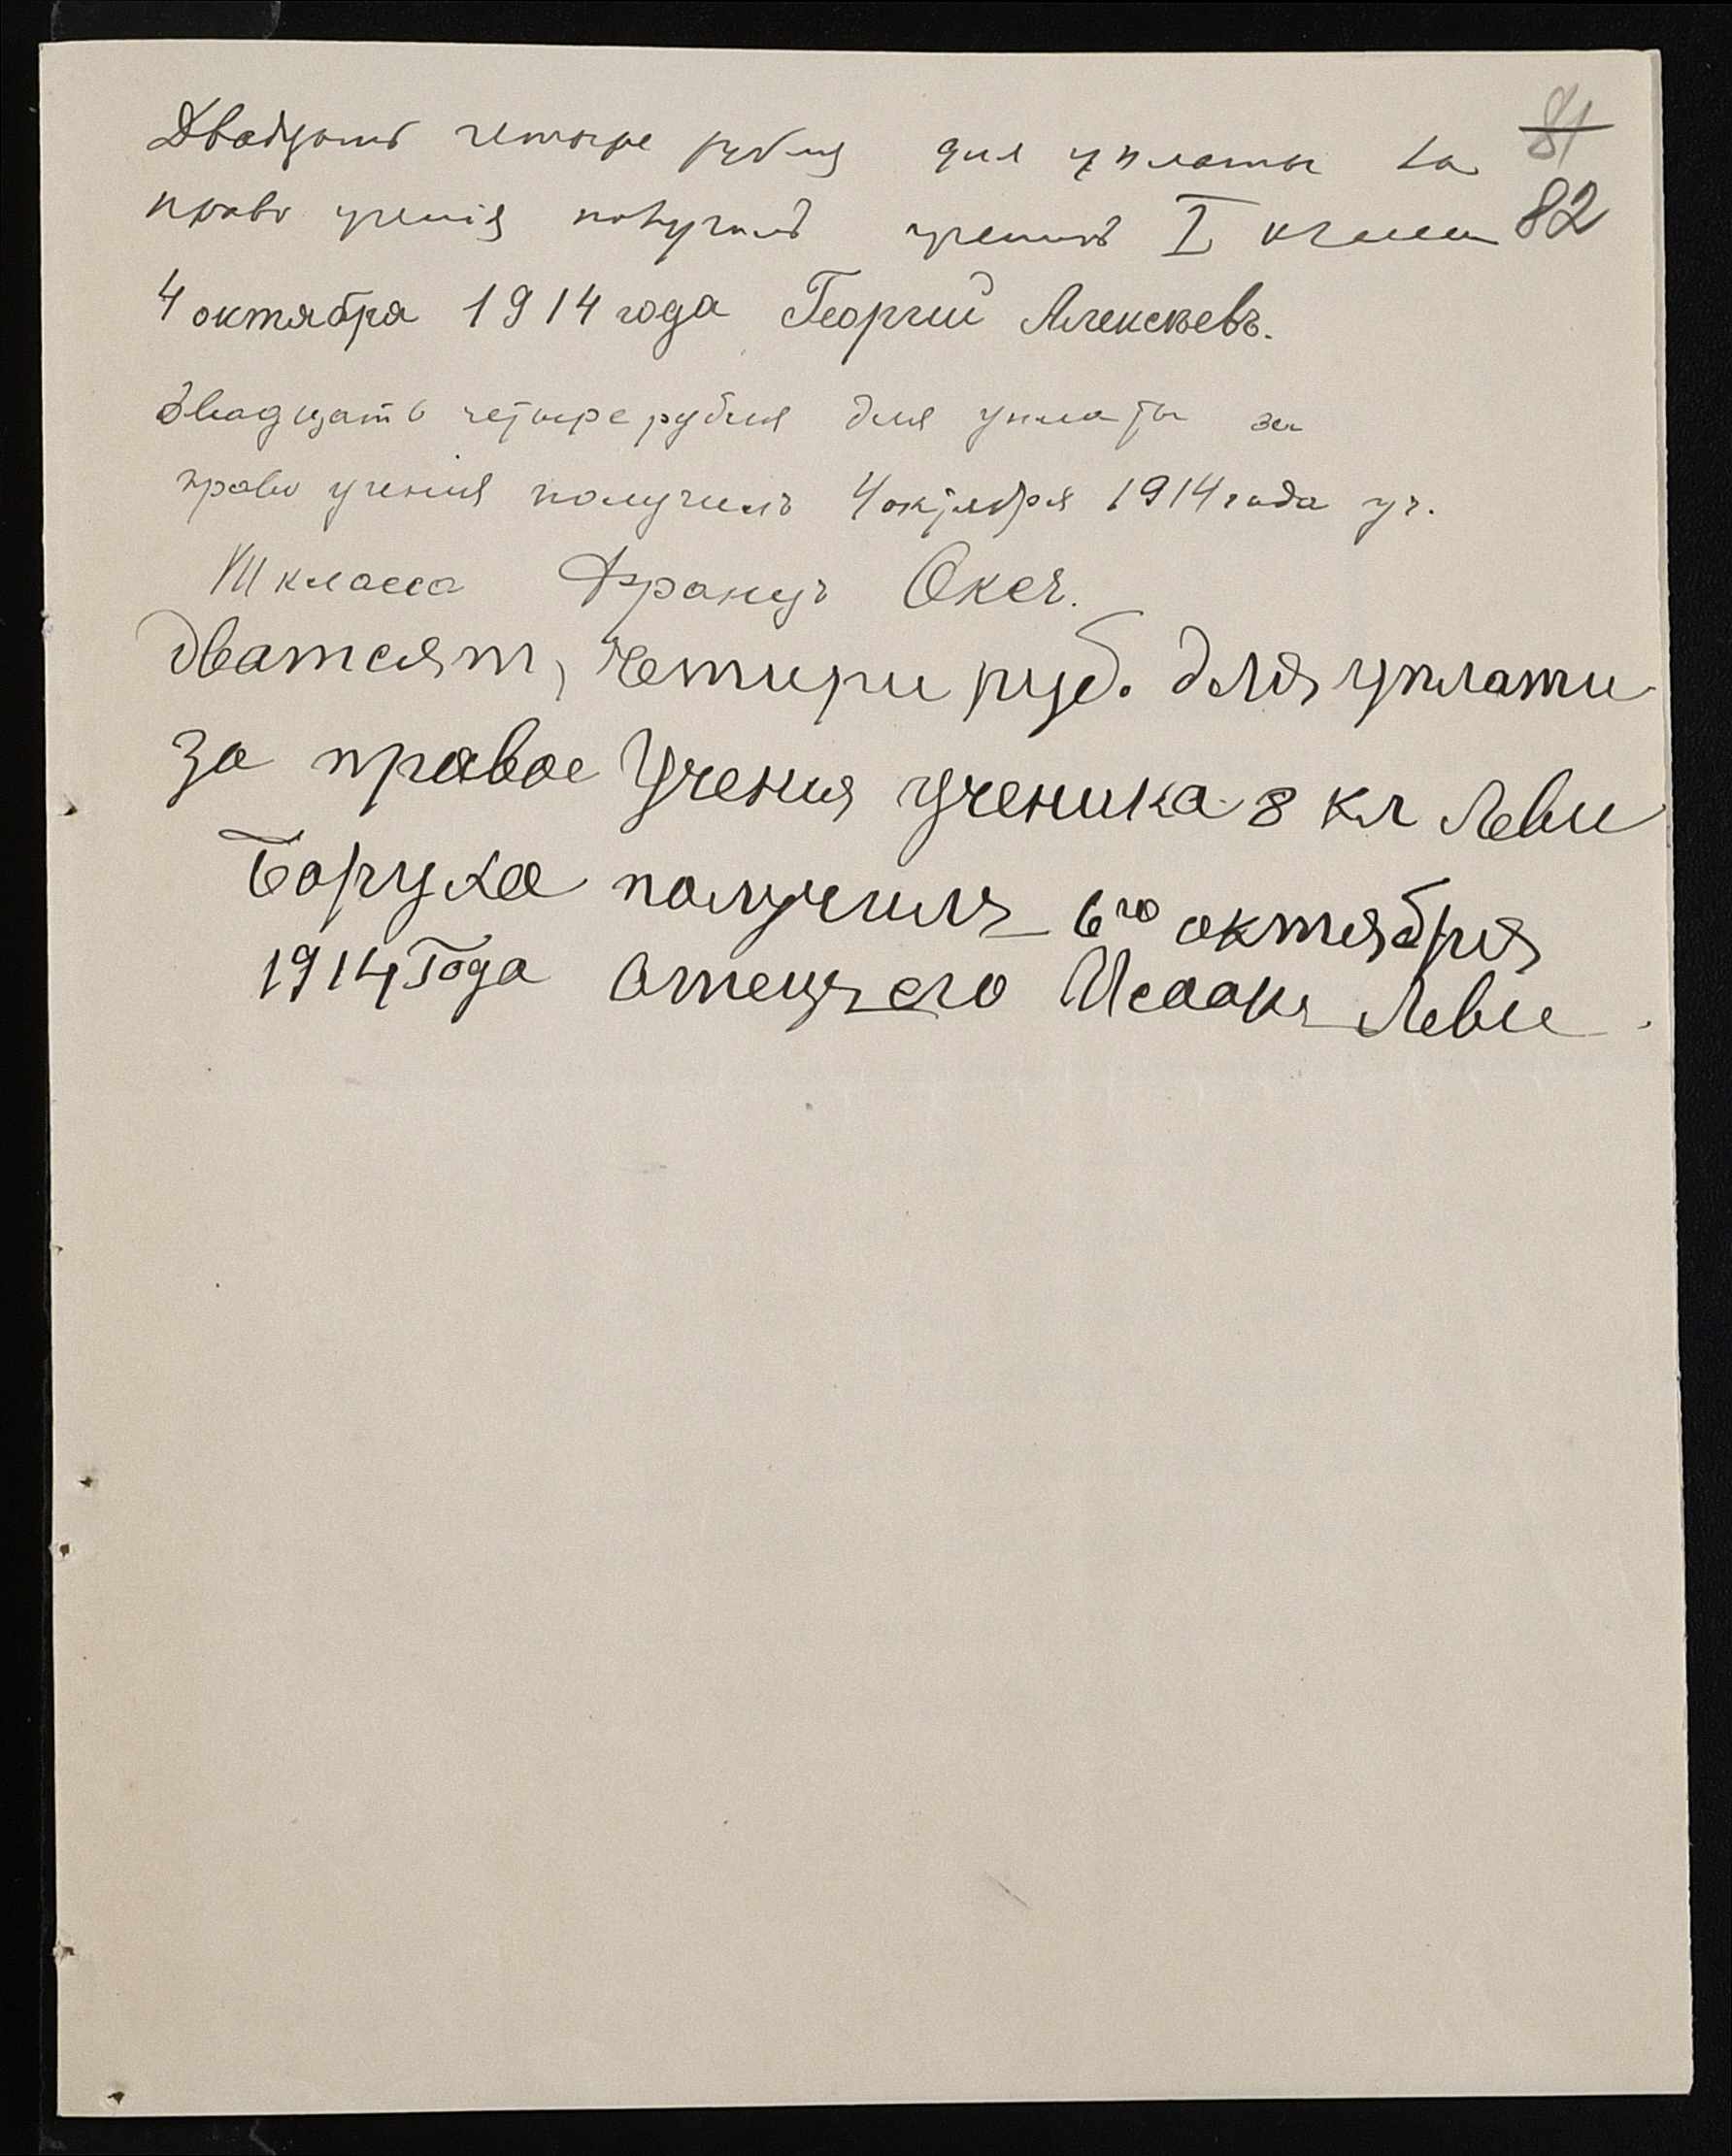 81
82
Двадцать четыре рубля для уплаты за
право ученія получилъ ученикъ I класса
4 октября 1914 года Георгий Алексѣевъ.
Двадцать четыре рубля для уплаты за
право учения получилъ 4 октября 1914 года уч.
VIII класса Францъ Окс.
дватсят, четири руб. для уплати
за правое Учения ученика 8 кл Леви
Боруха получилъ 6го октября
1914 Года Отецъ его Исаакъ Леви.